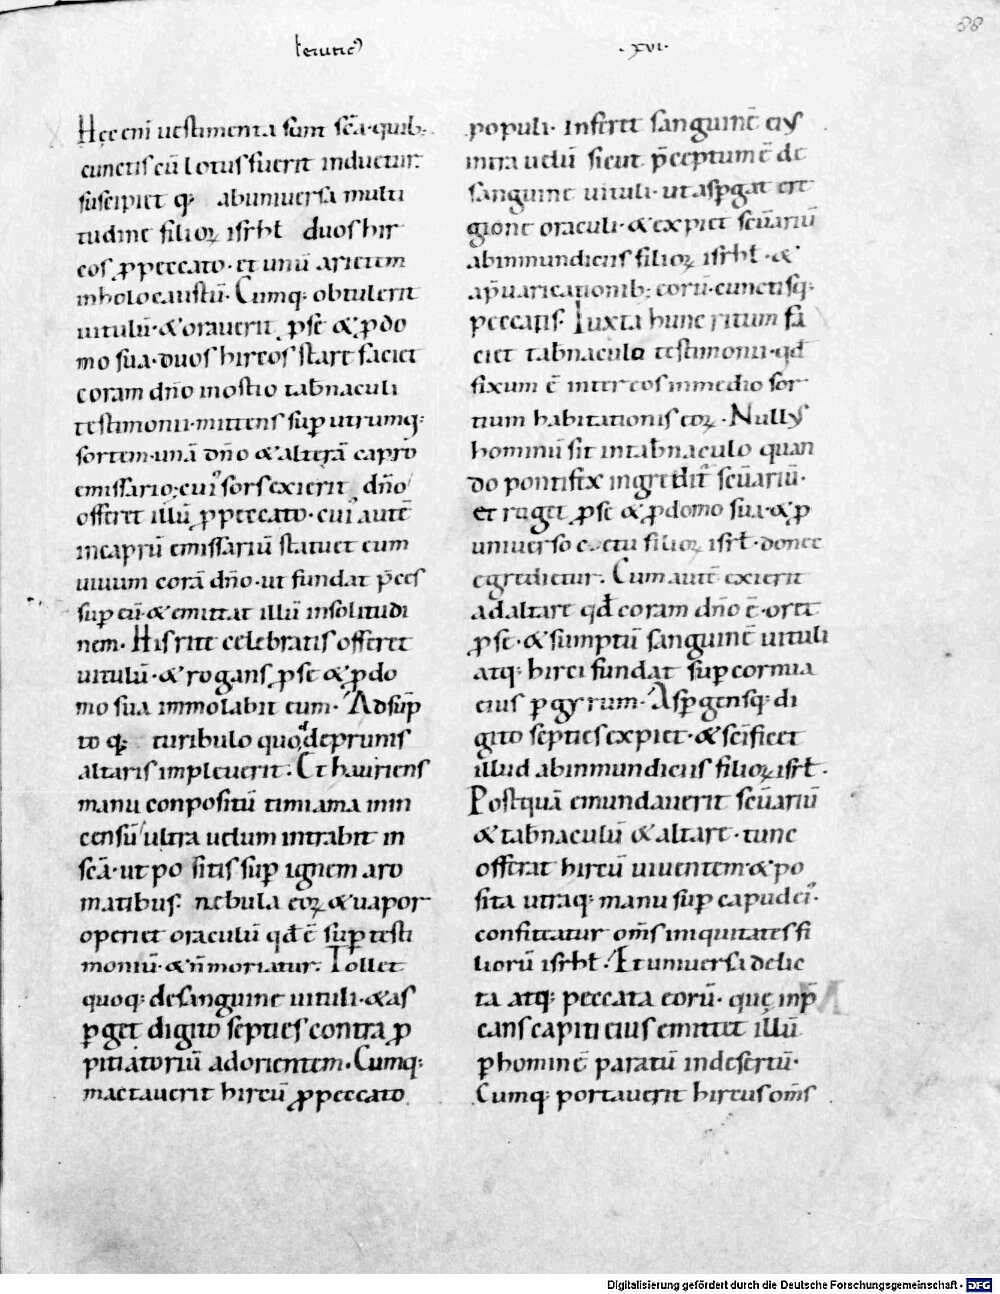 leuitic᷒
· xvi ·
88
Hęc eni᷑ uestimenta sunt sc̄a · quib;
cunctis cū lotus fuerit induetur.
suscipiet q; ab uniuersa multi
tudine filioꝝ isrħł duos hir
cos ꝓ peccato · et unū arietem
in holocaustū · Cumq; obtulerit
uitulū · & orauerit ꝓ se & ꝓ do
mo sua · duos hircos stare faciet
coram dn̄o in ostio tab̄naculi
testimonii · mittens suꝑ utrumq;
sortem · unā dn̄o & alterā capro
emissario; cui᷒ sors exierit dn̄o
offeret illū ꝓ peccato · cui᷒ autē
in caprū emissariū statuet eum
uiuum corā dn̄o · ut fundat p̄ces
suꝑ eū · & emittat illū in solitudi
nem · His rite celebratis offeret
uitulū · & rogans ꝓ se & ꝓ do
mo sua immolabit eum · Adsūp
to q; turibulo quod de prunis
altaris impleuerit · Et hauriens
manu conpositū timiama in in
censū ultra uelum intrabit in
sc̄a · ut po sitis suꝑ ignem aro
matibus · nebula eoꝝ & uapor
operiet oraculū qđ ē suꝑ testi
moniū · & n̄ moriatur · Tollet
quoq; de sanguine uituli · & as
ꝑget digito septies contra ꝓ
pitiatorium ad orientem · Cumq;
mactauerit hircū ꝓ peccato
populi · inferet sanguinē ei᷒
intra uelū sicut p̄ceptum ē de
sanguine uituli · ut asꝑgat e re
gione oraculi · & expiet sc̄uariū
ab inmundiciis filioꝝ isrħł · &
a p̄uaricationib; eorū · cunctisq;
peccatis · Iuxta hunc ritum fa
ciet tab̄naculo testimonii · qđ
fixum ē inter eos in medio sor
tium habitationis eoꝝ · Null᷒
hominū sit in tab̄naculo quan
do pontifex ingredit᷑ sc̄uariū ·
et roget ꝓ se & ꝓ domo sua · & ꝓ
uniuerso cetu filioꝝ isrł · donec
egredietur · Cum autē exierit
ad altare qđ coram dn̄o ē · oret
ꝓ se · & sumptū sanguinē uituli
atq; hirci fundat suꝑ cornua
eius ꝑ gyrum · Asꝑgensq; di
gito septies expiet · & sc̄ificet
illud ab inmundiciis filioꝝ isrł ·
Postquā emundauerit sc̄uariū
& tab̄naculū & altare · tunc
offerat hircū uiuentem · & po
sita utraq; manu suꝑ capud ei᷒ ·
confiteatur om̄s iniquitates fi
liorū isrħł · Et uniuersa delic
ta atq; peccata eorū · quę inp̄
cans capiti eius emittet illū
ꝑ hominē paratū in desertū ·
Cumq; portauerit hircus om̄s
Digitalisierung gefördert durch die Deutsche Forschungsgemeinschaft - DFG